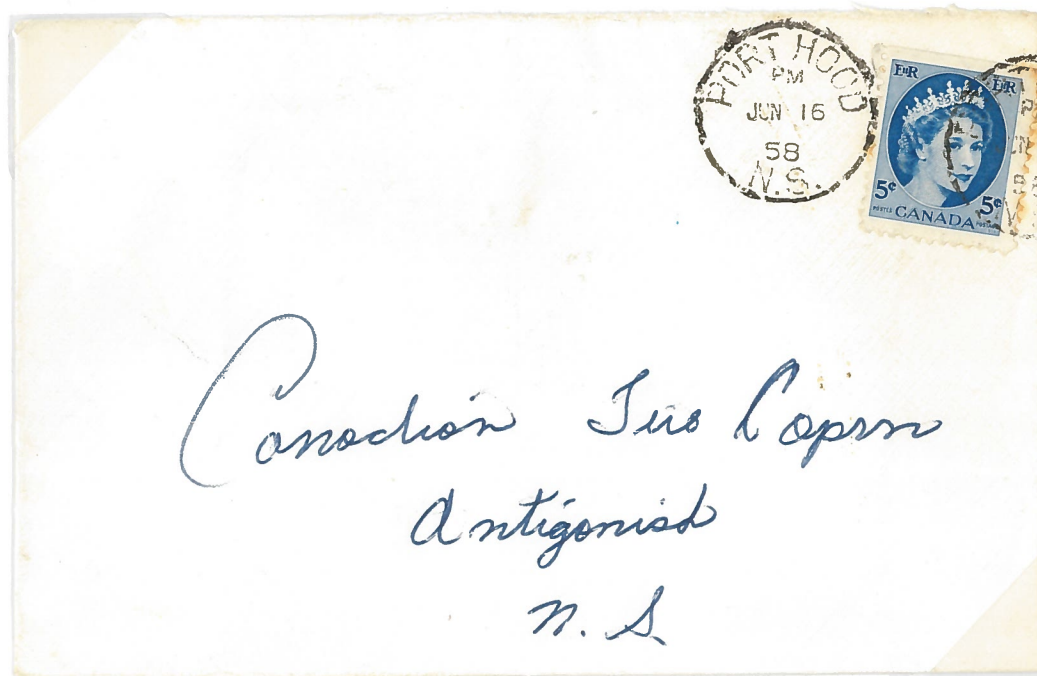 PORT HOOD
PM
JUN 16
58
N.S.
EIIR EIIR
5¢ 5¢
POSTES CANADA POSTAGE
Canadian Coprn
Antigonish
N. S.